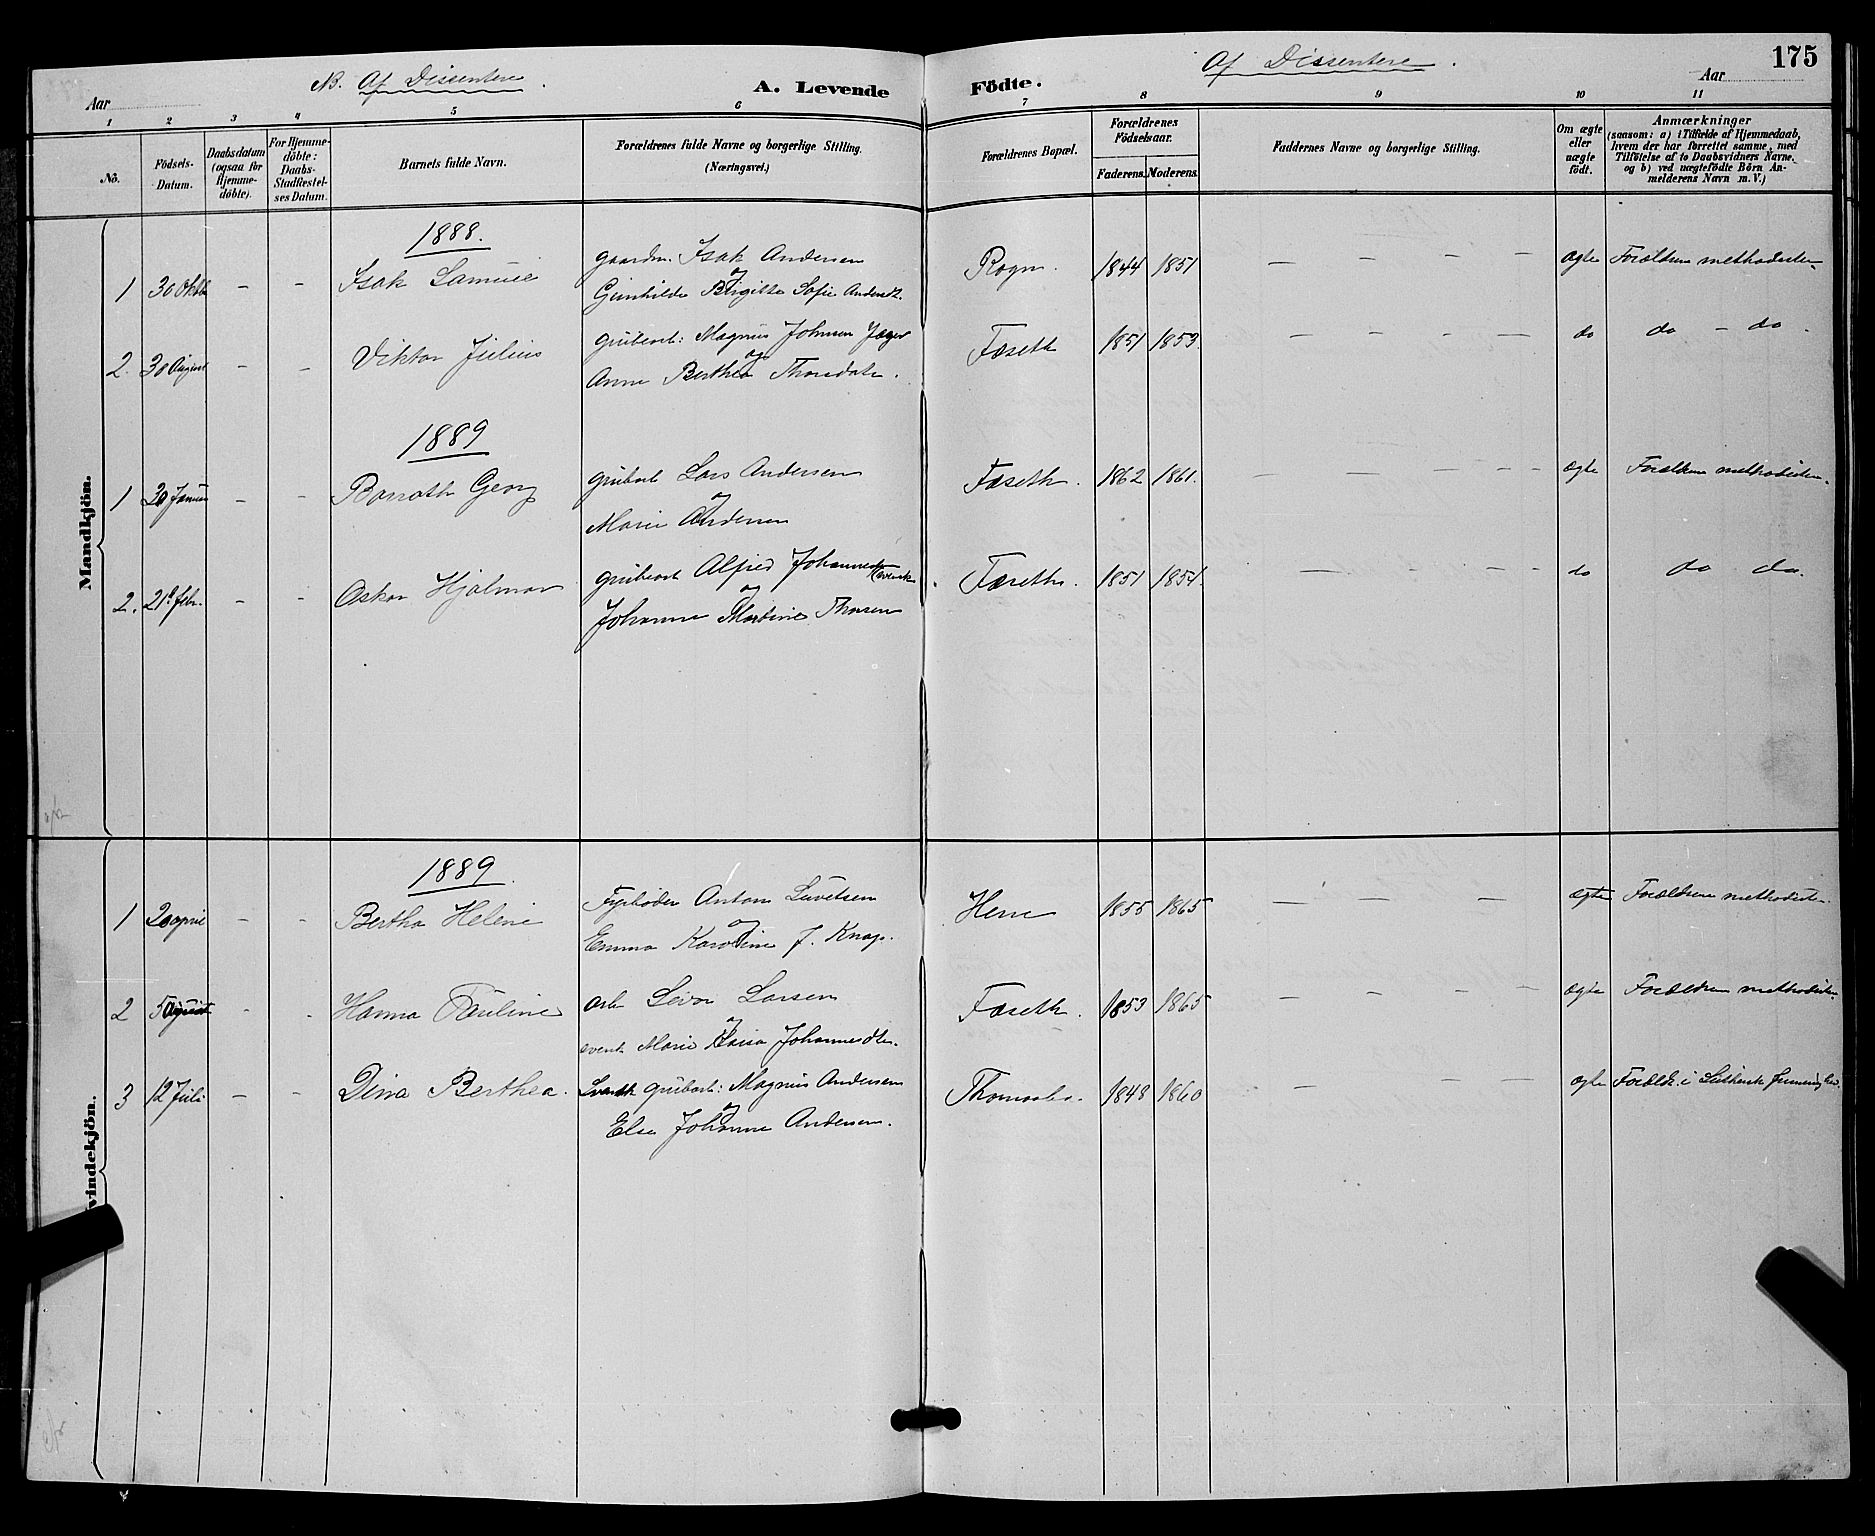 175
NB. Af Dissentere.
A. Levende Födte.
Af Dissentere.
Aar
Aar
1 2 3 4 5 6 7 8 9 10 11
No.
Födsels-Datum.
Daabsdatum (ogsaa for Hjemmedöbte).
For Hjemmedöbte: Daabs-Stadfæstelses Datum.
Barnets fulde Navn.
Forældrenes fulde Navne og borgerlige Stilling.
(Næringsvei.)
Forældrenes Bopæl.
Forældrenes Födselsaar.
Faderens. Moderens.
Faddernes Navne og borgerlige Stilling.
Om ægte eller uægte födt.
Anmærkninger
(saasom: a) i Tilfælde af Hjemmedaab, hvem der har forrettet samme, med Tilföielse af to Daabsvidners Navne, og b) ved uægtefödte Börn Anmelderens Navn m. V.)
Mandkjön.
1888.
1 30 Oktb – – Isak Samuel gaardm. Isak Andersen
og
Gunhilde Birgitte Sofie Andersdt. Rogn. 1844 1851 – – – – ægte Forældrene methodister.
2. 30 August – – Viktor Julius grubearb: Magnus Johnsen Jæger
og
Anne Berthea Thorsdatr. Fæseth 1851 1853. – – – – do do – do.
1889
1 30 Januar – – Barrath Georg grubarb Lars Andersen
og
Marie Andersen Fæseth. 1862 1861. – – – – – ægte Forældrene methodister.
2. 21. febr. – – Oskar Hjalmar grubearb Alfred Johannesen (svensk
og
Johanne Martine Thorsen Fæseth. 1851 1854 – – – – do do do.
vindekjön.
1889.
1 20 april – – Bertha Helene Fyrböder Anton Sivetsen
og
Emma Karoline J. Knap. Herre 1855 1865 – – – – ægte Forældrene methodister.
2 5 August – – Hanna Pauline arb Lars Larsen
og
svensk Marie Kaisa Johannesdtr. Fæseth. 1853 1865 – – – – ægte Forældrene methodister.
3 12 Juli – – Dina Berthea. Svensk grubarb: Magnus Andersen
og
Else Johanne Andersen. 1848 1860 – – – – ægte Foræld. i Luthersk